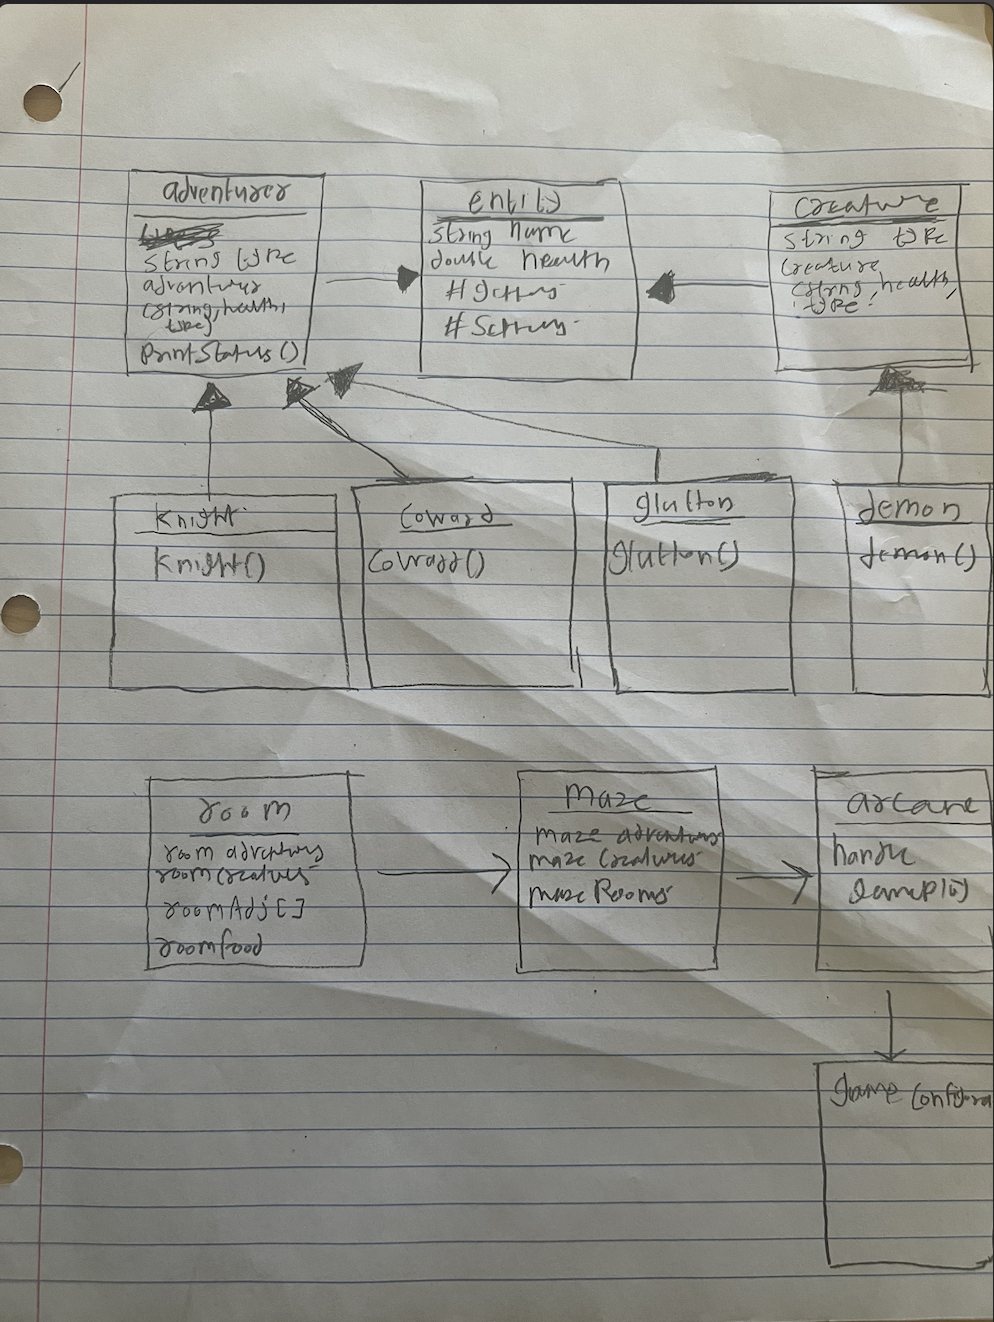 adventurer
string type
adventurer
(string, health,
type)
printStatus()
entity
string name
double health
# getters
# setters
creature
string type
creature
(string, health,
type
Knight
Knight()
Coward
Coward()
glutton
glutton()
demon
demon()
room
room adventurers
room creatures
roomAdj[]
roomfood
maze
maze adventurers
maze creatures
maze Rooms
arcane
handle
Gameplay
game configura